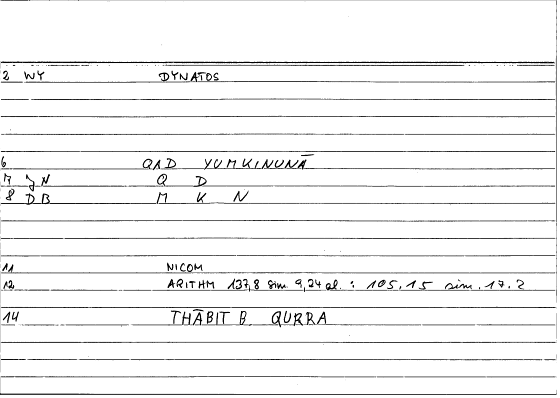 2 WY DYNATOS
6 QAD YUMKINUNĀ
7 JN Q D
8 DB M K N
11 NICOM
12 ARITHM 137,8 sim 9,24 al. : 105.15 sim. 17.2
14 THĀBIT B. QURRA